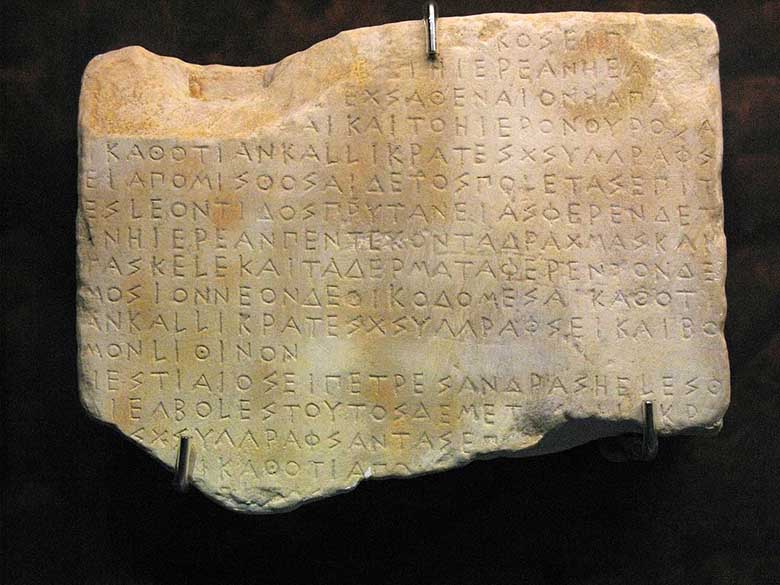 ΚΟΣΕΙΠ
ΕΙΗΙΕΡΕΑΝΗΕΑ
ΕΧΣΑΘΕΝΑΙΟΝΗΑΠΑ
ΑΙΚΑΙΤΟΗΙΕΡΟΝΘΥΡΟΣΑ
ΙΚΑΘΟΤΙΑΝΚΑΛΛΙΚΡΑΤΕΣΧΣΥΓΓΡΑΦΣ
ΕΙΑΠΟΜΙΣΘΟΣΑΙΔΕΤΟΣΠΟΛΕΤΑΣΕΠΙΤ
ΕΣΛΕΟΝΤΙΔΟΣΠΡΥΤΑΝΕΙΑΣΦΕΡΕΝΔΕΤ
ΕΝΗΙΕΡΕΑΝΠΕΝΤΕΚΟΝΤΑΔΡΑΧΜΑΣΚΑΙ
ΤΑΣΚΕΛΕΚΑΙΤΑΔΕΡΜΑΤΑΦΕΡΕΝΤΟΝΔΕ
ΜΟΣΙΟΝΝΕΟΝΔΕΟΙΚΟΔΟΜΕΣΑΙΚΑΘΟΤΙ
ΑΝΚΑΛΛΙΚΡΑΤΕΣΧΣΥΓΓΡΑΦΣΕΙΚΑΙΒΟ
ΜΟΝΛΙΘΙΝΟΝ
ΗΕΣΤΙΑΙΟΣΕΙΠΕΤΡΕΣΑΝΔΡΑΣΗΕΛΕΣΘ
ΑΙΕΓΒΟΛΕΣΤΟΥΤΟΣΔΕΜΕΤ ΚΡ
ΣΧΣΥΓΓΡΑΦΣΑΝΤΑΣΕΠ
ΙΚΑΘΟΤΙΑΠΟ